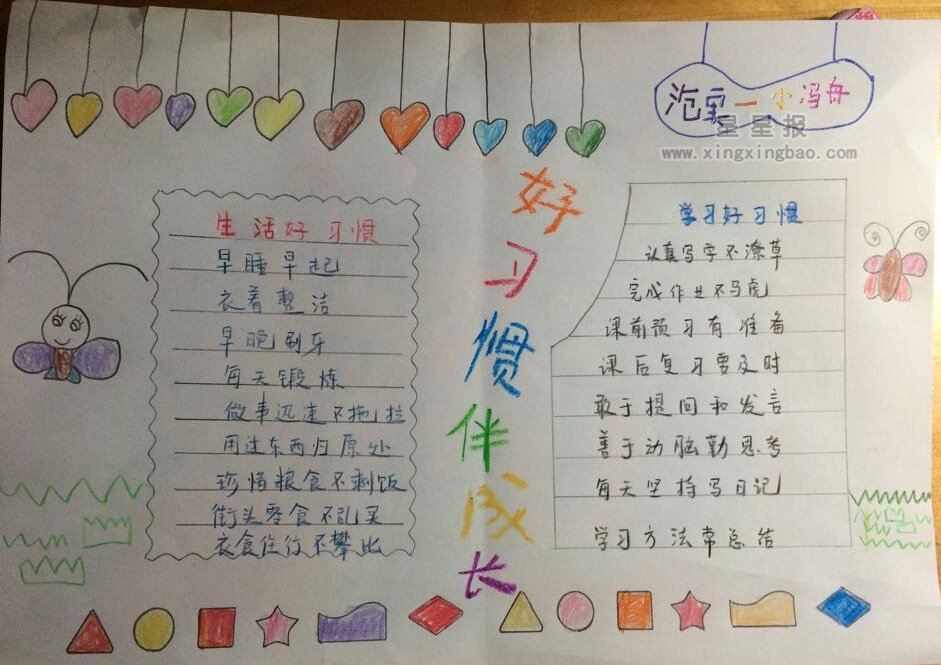 泡宝一小冯舟
星星报
www.xingxingbao.com
好习惯伴成长
生活好习惯
早睡早起
衣着整洁
早晚刷牙
每天锻炼
做事迅速不拖拉
用过东西归原处
珍惜粮食不剩饭
街头零食不乱买
衣食住行不攀比
学习好习惯
认真写字不潦草
完成作业不马虎
课前预习有准备
课后复习要及时
敢于提问和发言
善于动脑勤思考
每天坚持写日记
学习方法常总结